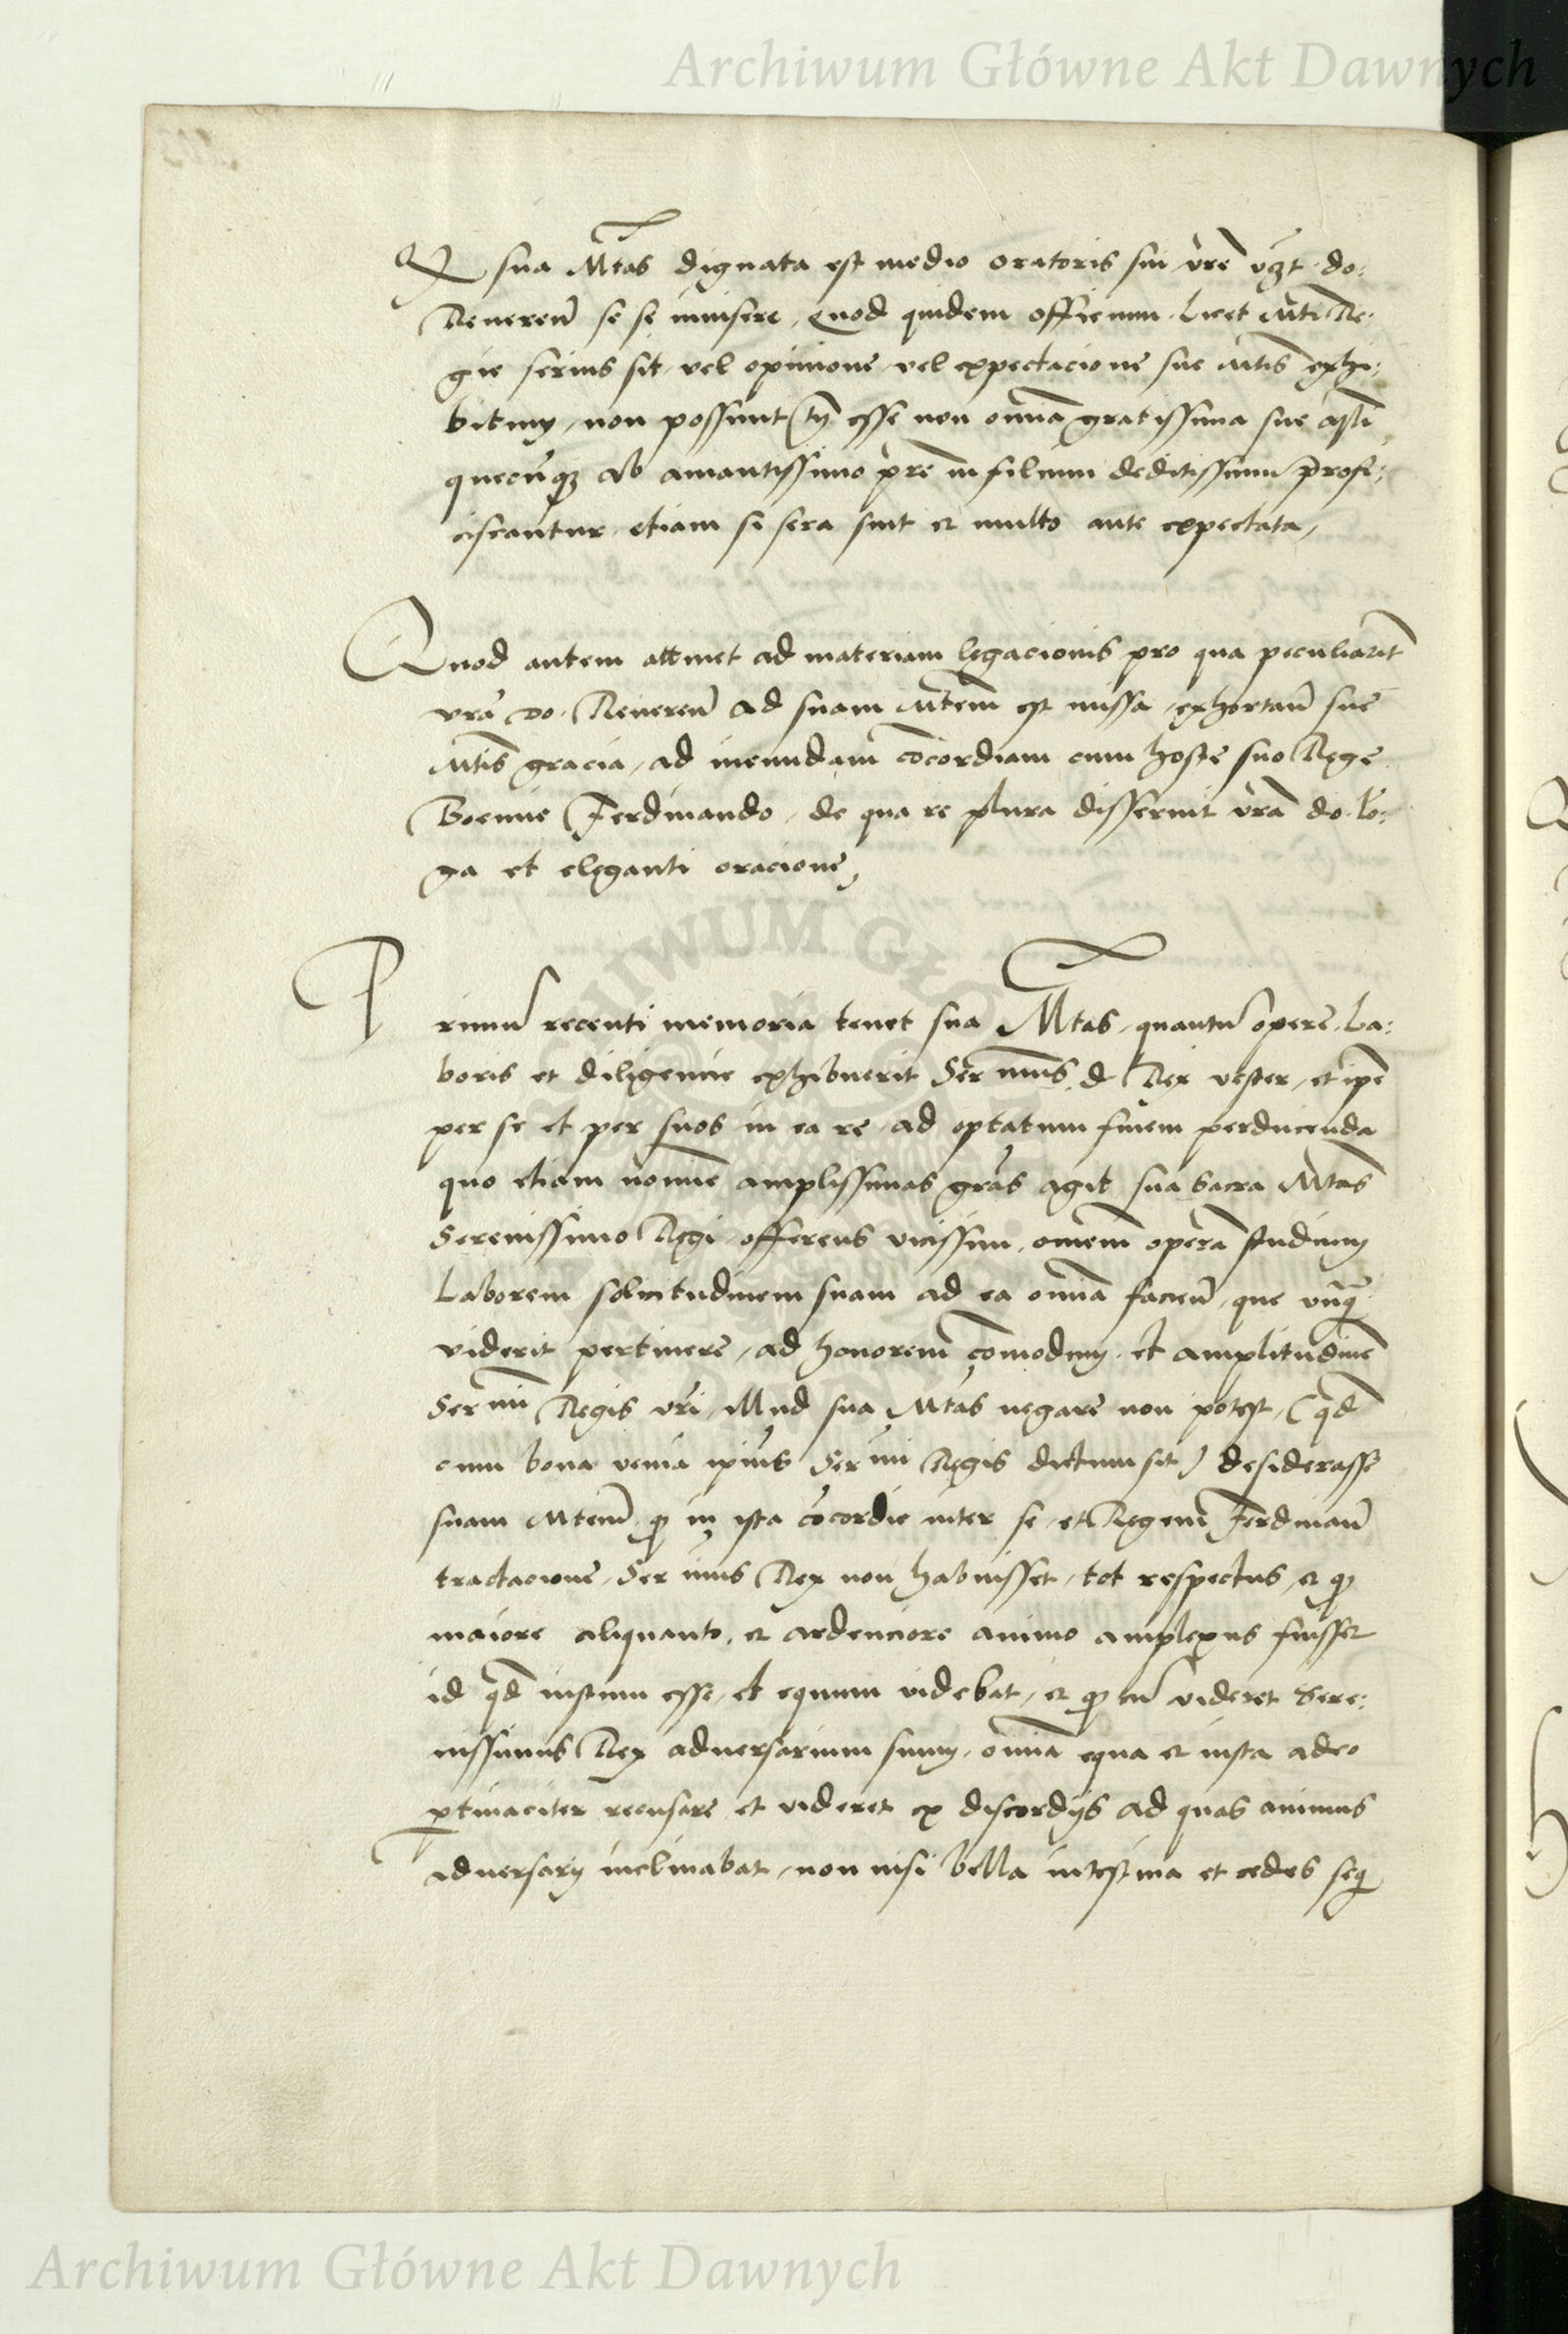 Archiwum Główne Akt Dawnych
Q sua Mtas dignata est medio oratoris sui vre vzt do:
Reueren se se inuisere, Quod quidem officium licet Mti Re:
gie serius sit vel opinione vel expectacione sue Mtis exhi:
bitum, non possunt tn esse non omnia gratissima sue Mti
quecunq ab amantissimo pre in filium deditissimum profi:
ciscantur etiam si sera sint et multo ante expectata,
Quod autem attinet ad materiam legacionis pro qua peculiarit
vra do Reueren ad suam Mtem est missa, exhortan sue
Mtis gracia, ad ineundam cocordiam cum hoste suo Rege
Boemie Ferdinando, de qua re plura disseruit vra do lo:
ga et eleganti oracione,
Primu recenti memoria tenet sua Mtas, quantu opere la:
boris et diligencie exhibuerit Ser mus d Rex vester, et ipe
per se et per suos in ea re ad optatum finem perducenda
quo etiam nomine amplissimas gras agit sua Sacra Mtas
Serenissimo Regi offerens vicissim omem opera studium
Laborem solicitudinem suam ad ea omnia facien, que vnq
viderit pertinere, ad honorem comodum et amplitudine
Ser mi Regis vri, Illud sua Mtas negare non potest, (qd
cum bona venia ipius Ser mi Regis dictum sit) desiderasse
suam Mtem q in ista cocordie inter se et Regem Ferdinan
tractacione, Ser mus Rex non habuisset, tot respectus, et q
maiore aliquanto, et ardenciore animo amplexus fuisset
id qd iustum esse, et equum videbat, et q cu videret Sere:
nissimus Rex aduersarium suum, omnia equa et iusta adeo
ptinaciter recusare et videret ex discordijs ad quas animus
aduersarij inclinabat, non nisi bella intestina et cedes seq
Archiwum Główne Akt Dawnych